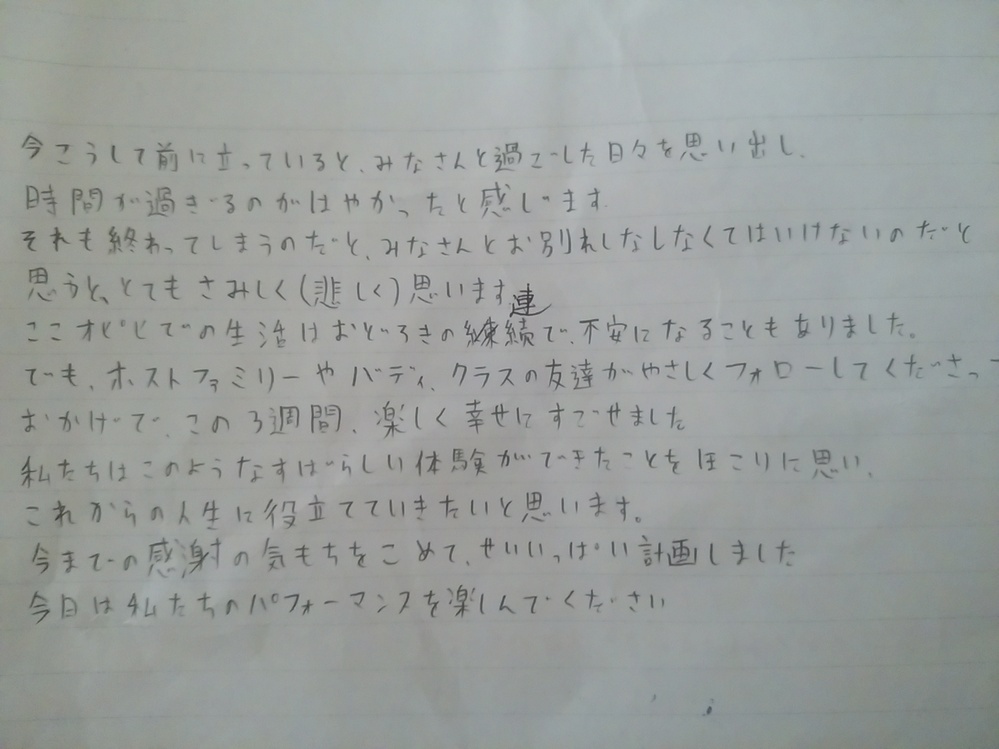 今こうして前に立っていると、みなさんと過ごした日々を思い出し、
時間が過ぎるのがはやかったと感じます
それも終わってしまうのだと、みなさんとお別れしなしなくてはいけないのだと
思うと、とてもさみしく(悲しく)思います。
連
ここオピビでの生活はおどろきの練続で、不安になることもありました。
でも、ホストファミリーやバディ、クラスの友達がやさしくフォローしてくださった
おかげで、この3週間、楽しく幸せにすごせました
私たちはこのようなすばらしい体験ができたことをほこりに思い、
これからの人生に役立てていきたいと思います。
今までの感謝の気もちをこめて、せいいっぱい計画しました
今日は私たちのパフォーマンスを楽しんでください